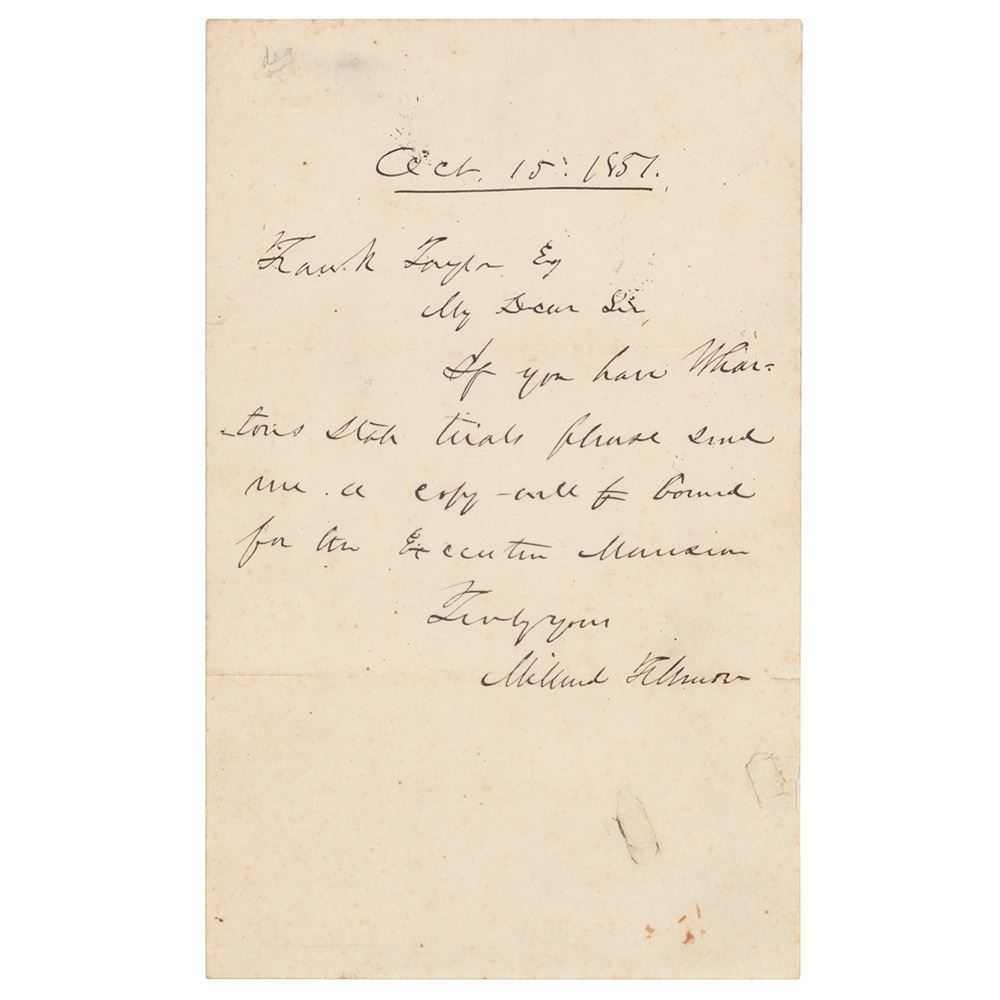 Oct. 15. 1851.
Frank Taylor Esq
My Dear Sir,
If you have Whar=
-tons State trials please send
me a copy - well bound
for the Executive Mansion
Truly yours
Millard Fillmore